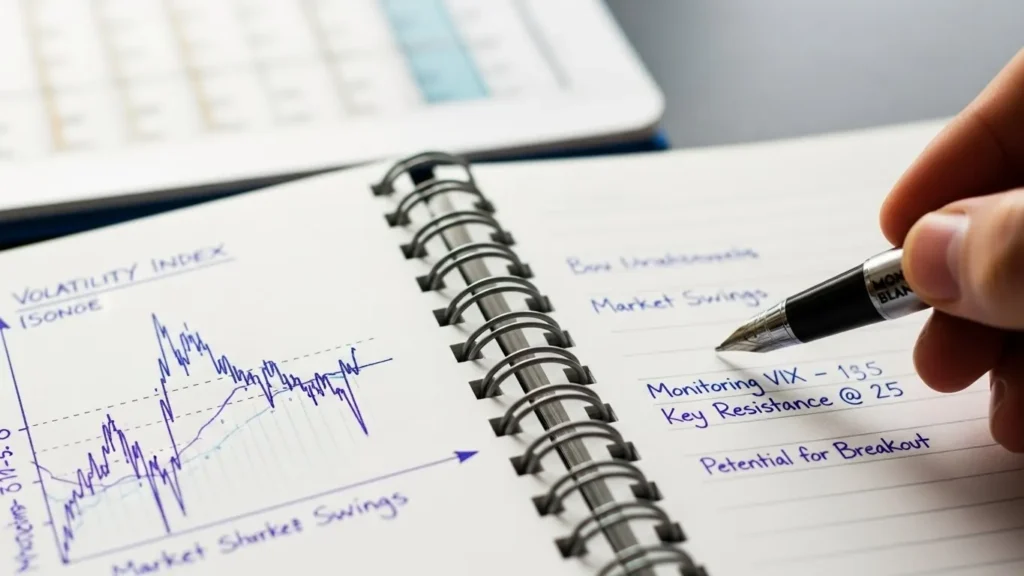 VOLATILITY INDEX
ISONOE
Market Sharket Swings
Market Swings
Monitoring VIX – 135
Key Resistance @ 25
Potential for Breakout
MON
BLAN